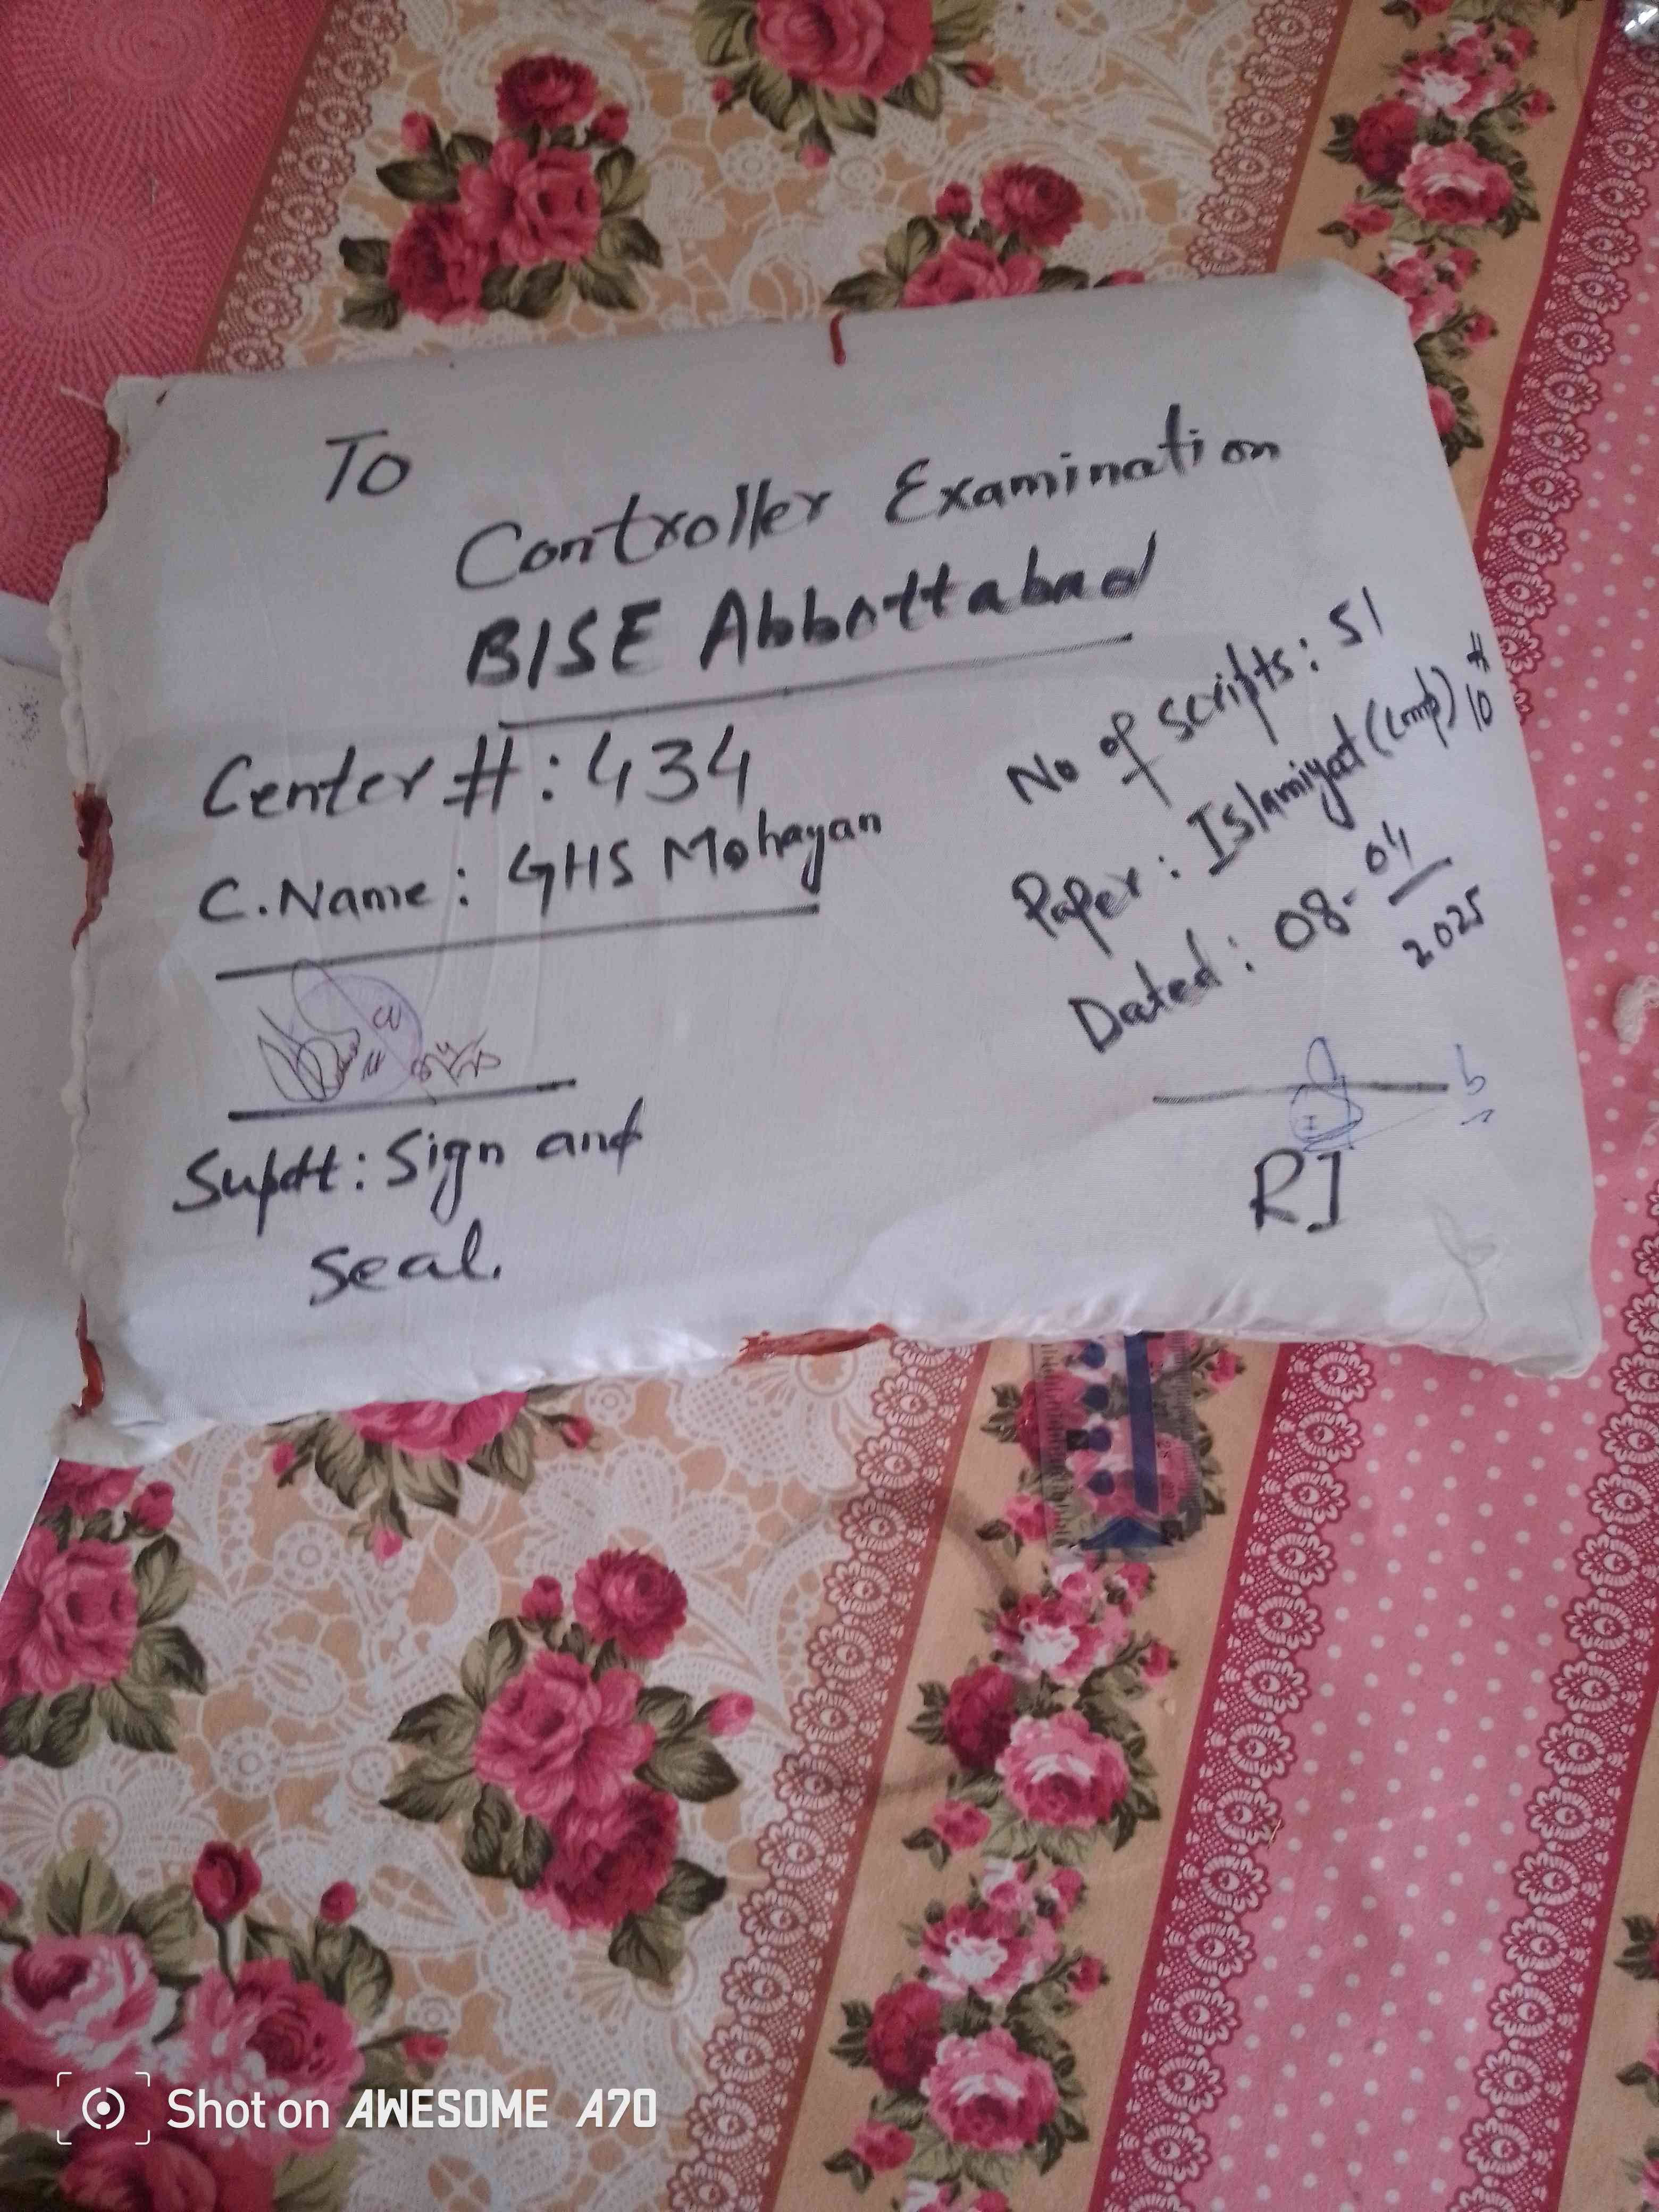 To
Controller Examination
BISE Abbottabad
Center #: 434
C.Name: GHS Mohayan
No of scripts: 51
Paper: Islamiyat (Comp) 10th
Dated: 08-04
2025
Supdt: Sign and
seal.
RI
Shot on AWESOME A70